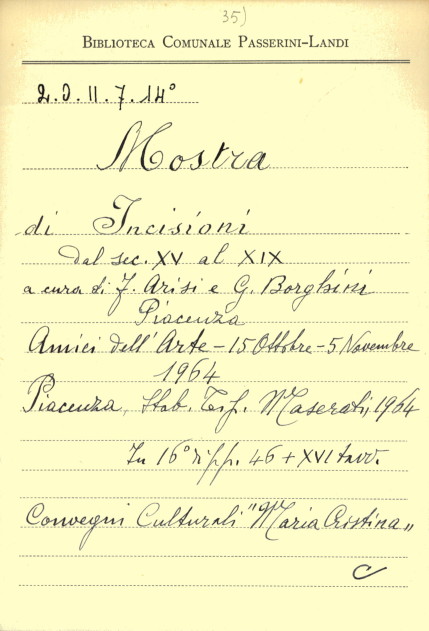 35)
BIBLIOTECA COMUNALE PASSERINI-LANDI
2.O.II.7.14°
Mostra
di Incisioni
dal sec. XV al XIX
a cura di F. Arisi e G. Borghini
Piacenza
Amici dell'Arte - 15 Ottobre - 5 Novembre
1964
Piacenza, Stab. Tip. Maserati, 1964
In 16° di pp. 46 + XVI tavv.
Convegni Culturali "Maria Cristina"